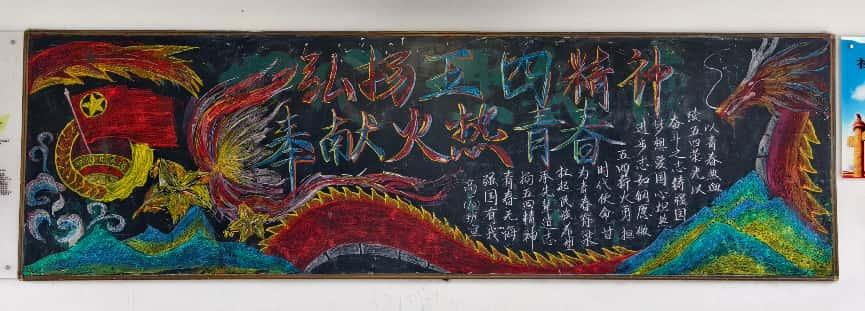 弘扬五四精神
奉献火热青春
以青春热血
续五四荣光以
奋斗之志铸强国
梦想爱国心炽热
进步志如钢愿做
五四薪火勇担
时代使命甘
为青春脊梁
扛起民族希望
承先辈遗志
扬五四精神
青春无悔
强国有我